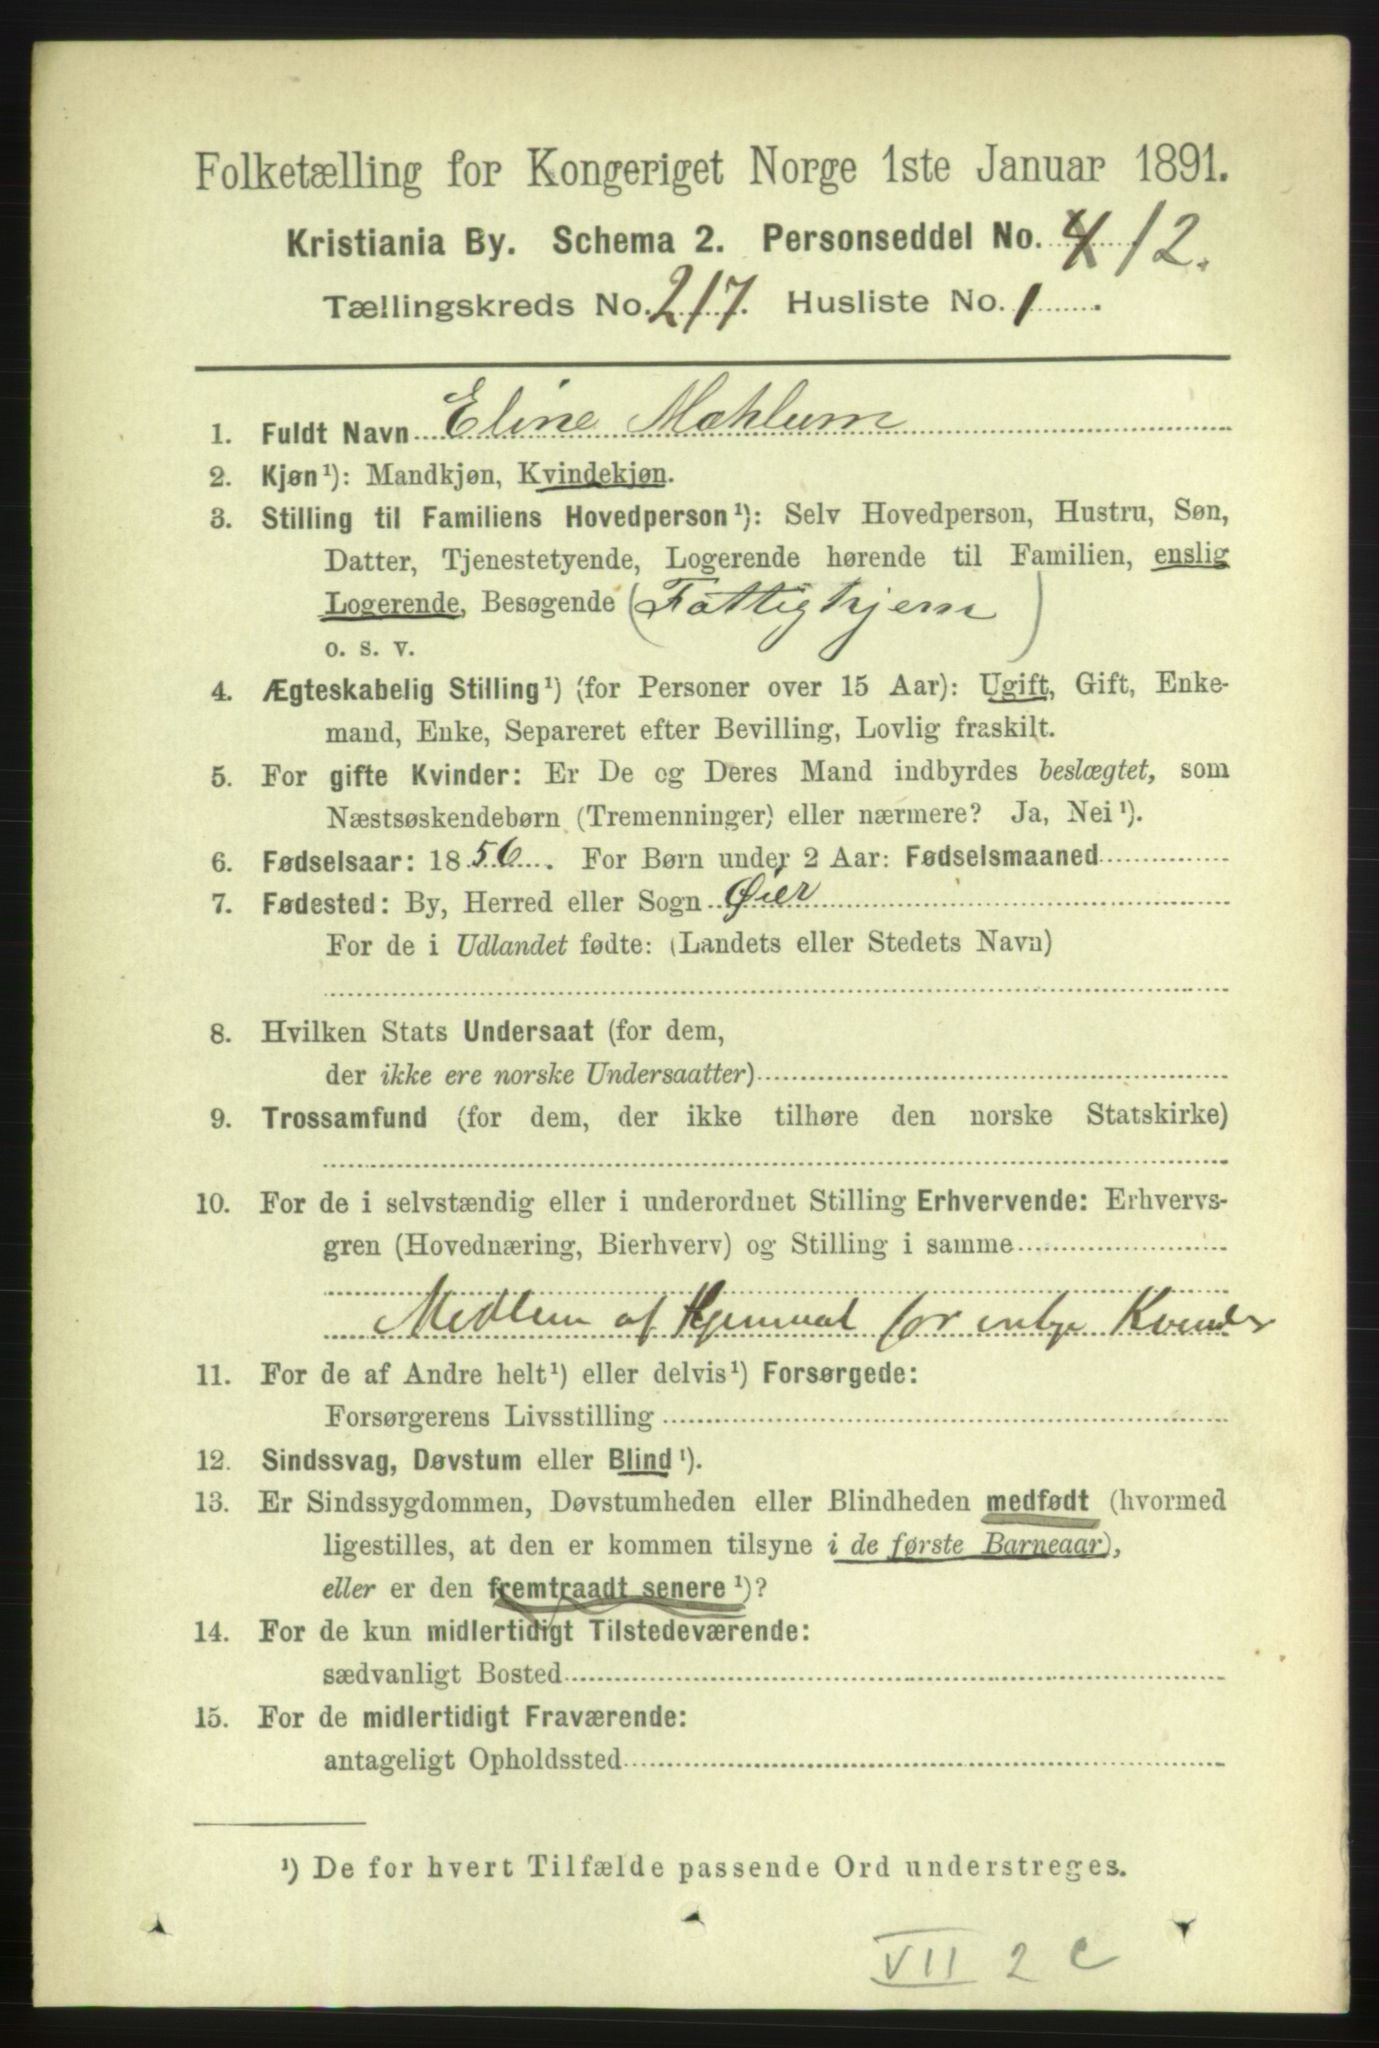 Folketælling for Kongeriget Norge 1ste Januar 1891.
Kristiania By. Schema 2. Personseddel No. 4 12.
Tællingskreds No. 217. Husliste No. 1.
1. Fuldt Navn Eline Mæhlum
2. Kjøn¹): Mandkjøn, Kvindekjøn.
3. Stilling til Familiens Hovedperson¹): Selv Hovedperson, Hustru, Søn,
Datter, Tjenestetyende, Logerende hørende til Familien, enslig
Logerende, Besøgende (Fattighjem)
o. s. v.
4. Ægteskabelig Stilling¹) (for Personer over 15 Aar): Ugift, Gift, Enke-
mand, Enke, Separeret efter Bevilling, Lovlig fraskilt.
5. For gifte Kvinder: Er De og Deres Mand indbyrdes beslægtet, som
Næstsøskendebørn (Tremenninger) eller nærmere? Ja, Nei¹).
6. Fødselsaar: 1856. For Børn under 2 Aar: Fødselsmaaned
7. Fødested: By, Herred eller Sogn Øier
For de i Udlandet fødte: (Landets eller Stedets Navn)
8. Hvilken Stats Undersaat (for dem,
der ikke ere norske Undersaatter)
9. Trossamfund (for dem, der ikke tilhøre den norske Statskirke)
10. For de i selvstændig eller i underordnet Stilling Erhvervende: Erhvervs-
gren (Hovednæring, Bierhverv) og Stilling i samme
Medlem af for Kvinder
11. For de af Andre helt¹) eller delvis¹) Forsørgede:
Forsørgerens Livsstilling
12. Sindssvag, Døvstum eller Blind¹).
13. Er Sindssygdommen, Døvstumheden eller Blindheden medfødt (hvormed
ligestilles, at den er kommen tilsyne i de første Barneaar),
eller er den fremtraadt senere¹)?
14. For de kun midlertidigt Tilstedeværende:
sædvanligt Bosted
15. For de midlertidigt Fraværende:
antageligt Opholdssted
¹) De for hvert Tilfælde passende Ord understreges.
VII 2 c